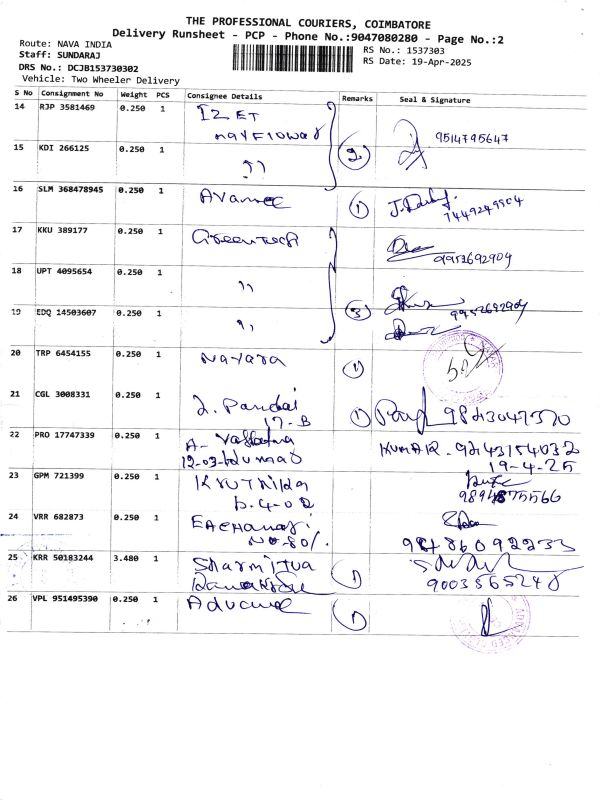 THE PROFESSIONAL COURIERS, COIMBATORE
Delivery Runsheet - PCP - Phone No.:9047080280 - Page No.:2
Route: NAVA INDIA
RS No.: 1537303
Staff: SUNDARAJ
RS Date: 19-Apr-2025
DRS No.: DCJB153730302
Vehicle: Two Wheeler Delivery
S No Consignment No Weight PCS Consignee Details Remarks Seal & Signature
14 RJP 3581469 0.250 1 IZET
mayflower 9514795647
15 KDI 266125 0.250 1 " 2
16 SLM 368478945 0.250 1 1
7449249804
17 KKU 389177 0.250 1 Greentech
9952692904
18 UPT 4095654 0.250 1 "
19 EDQ 14503607 0.250 1 " 3 9952692904
20 TRP 6454155 0.250 1 Nayara 1
21 CGL 3008331 0.250 1 Pandai 1 9843047370
17-B
22 PRO 17747339 0.250 1 A- KUMAR. 9243154032
12-03- Kumar 19-4-25
23 GPM 721399 0.250 1 Kruthika
D.4-02 9894875566
24 VRR 682873 0.250 1
No-80/. 98786092233
25 KRR 50183244 3.480 1 Sharmitha 1
9003565248
26 VPL 951495390 0.250 1 1